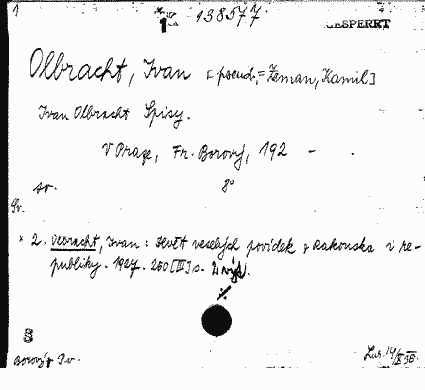 1
138577.
GESPERRT
Olbracht, Ivan [pseud. = Zeman, Kamil]
Ivan Olbracht Spisy.
V Praze, Fr. Borový, 192 - .
sv. 8°
Gr.
* 2. Olbracht, Ivan: Devět veselých povídek z Rakouska i re-
publiky. 1927. 260 [III] s. 2 výd.
8
Borový Iv.